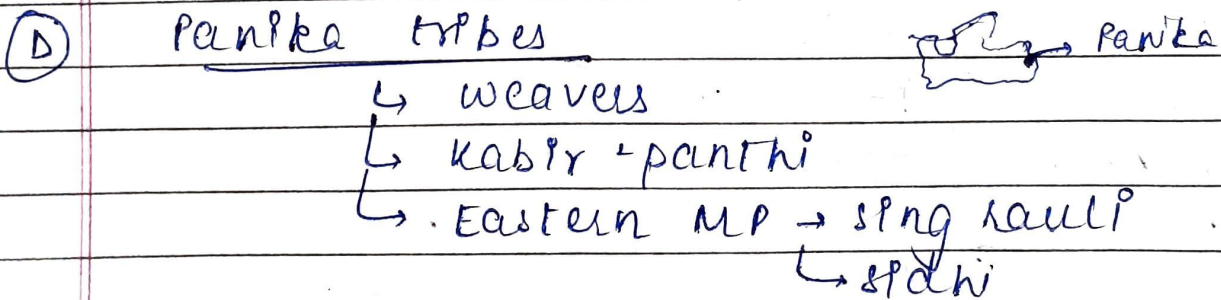 D Panika tribes
Panika
↳ weavers
↳ Kabir - panthi
↳ Eastern MP → singrauli
↳ sidhi